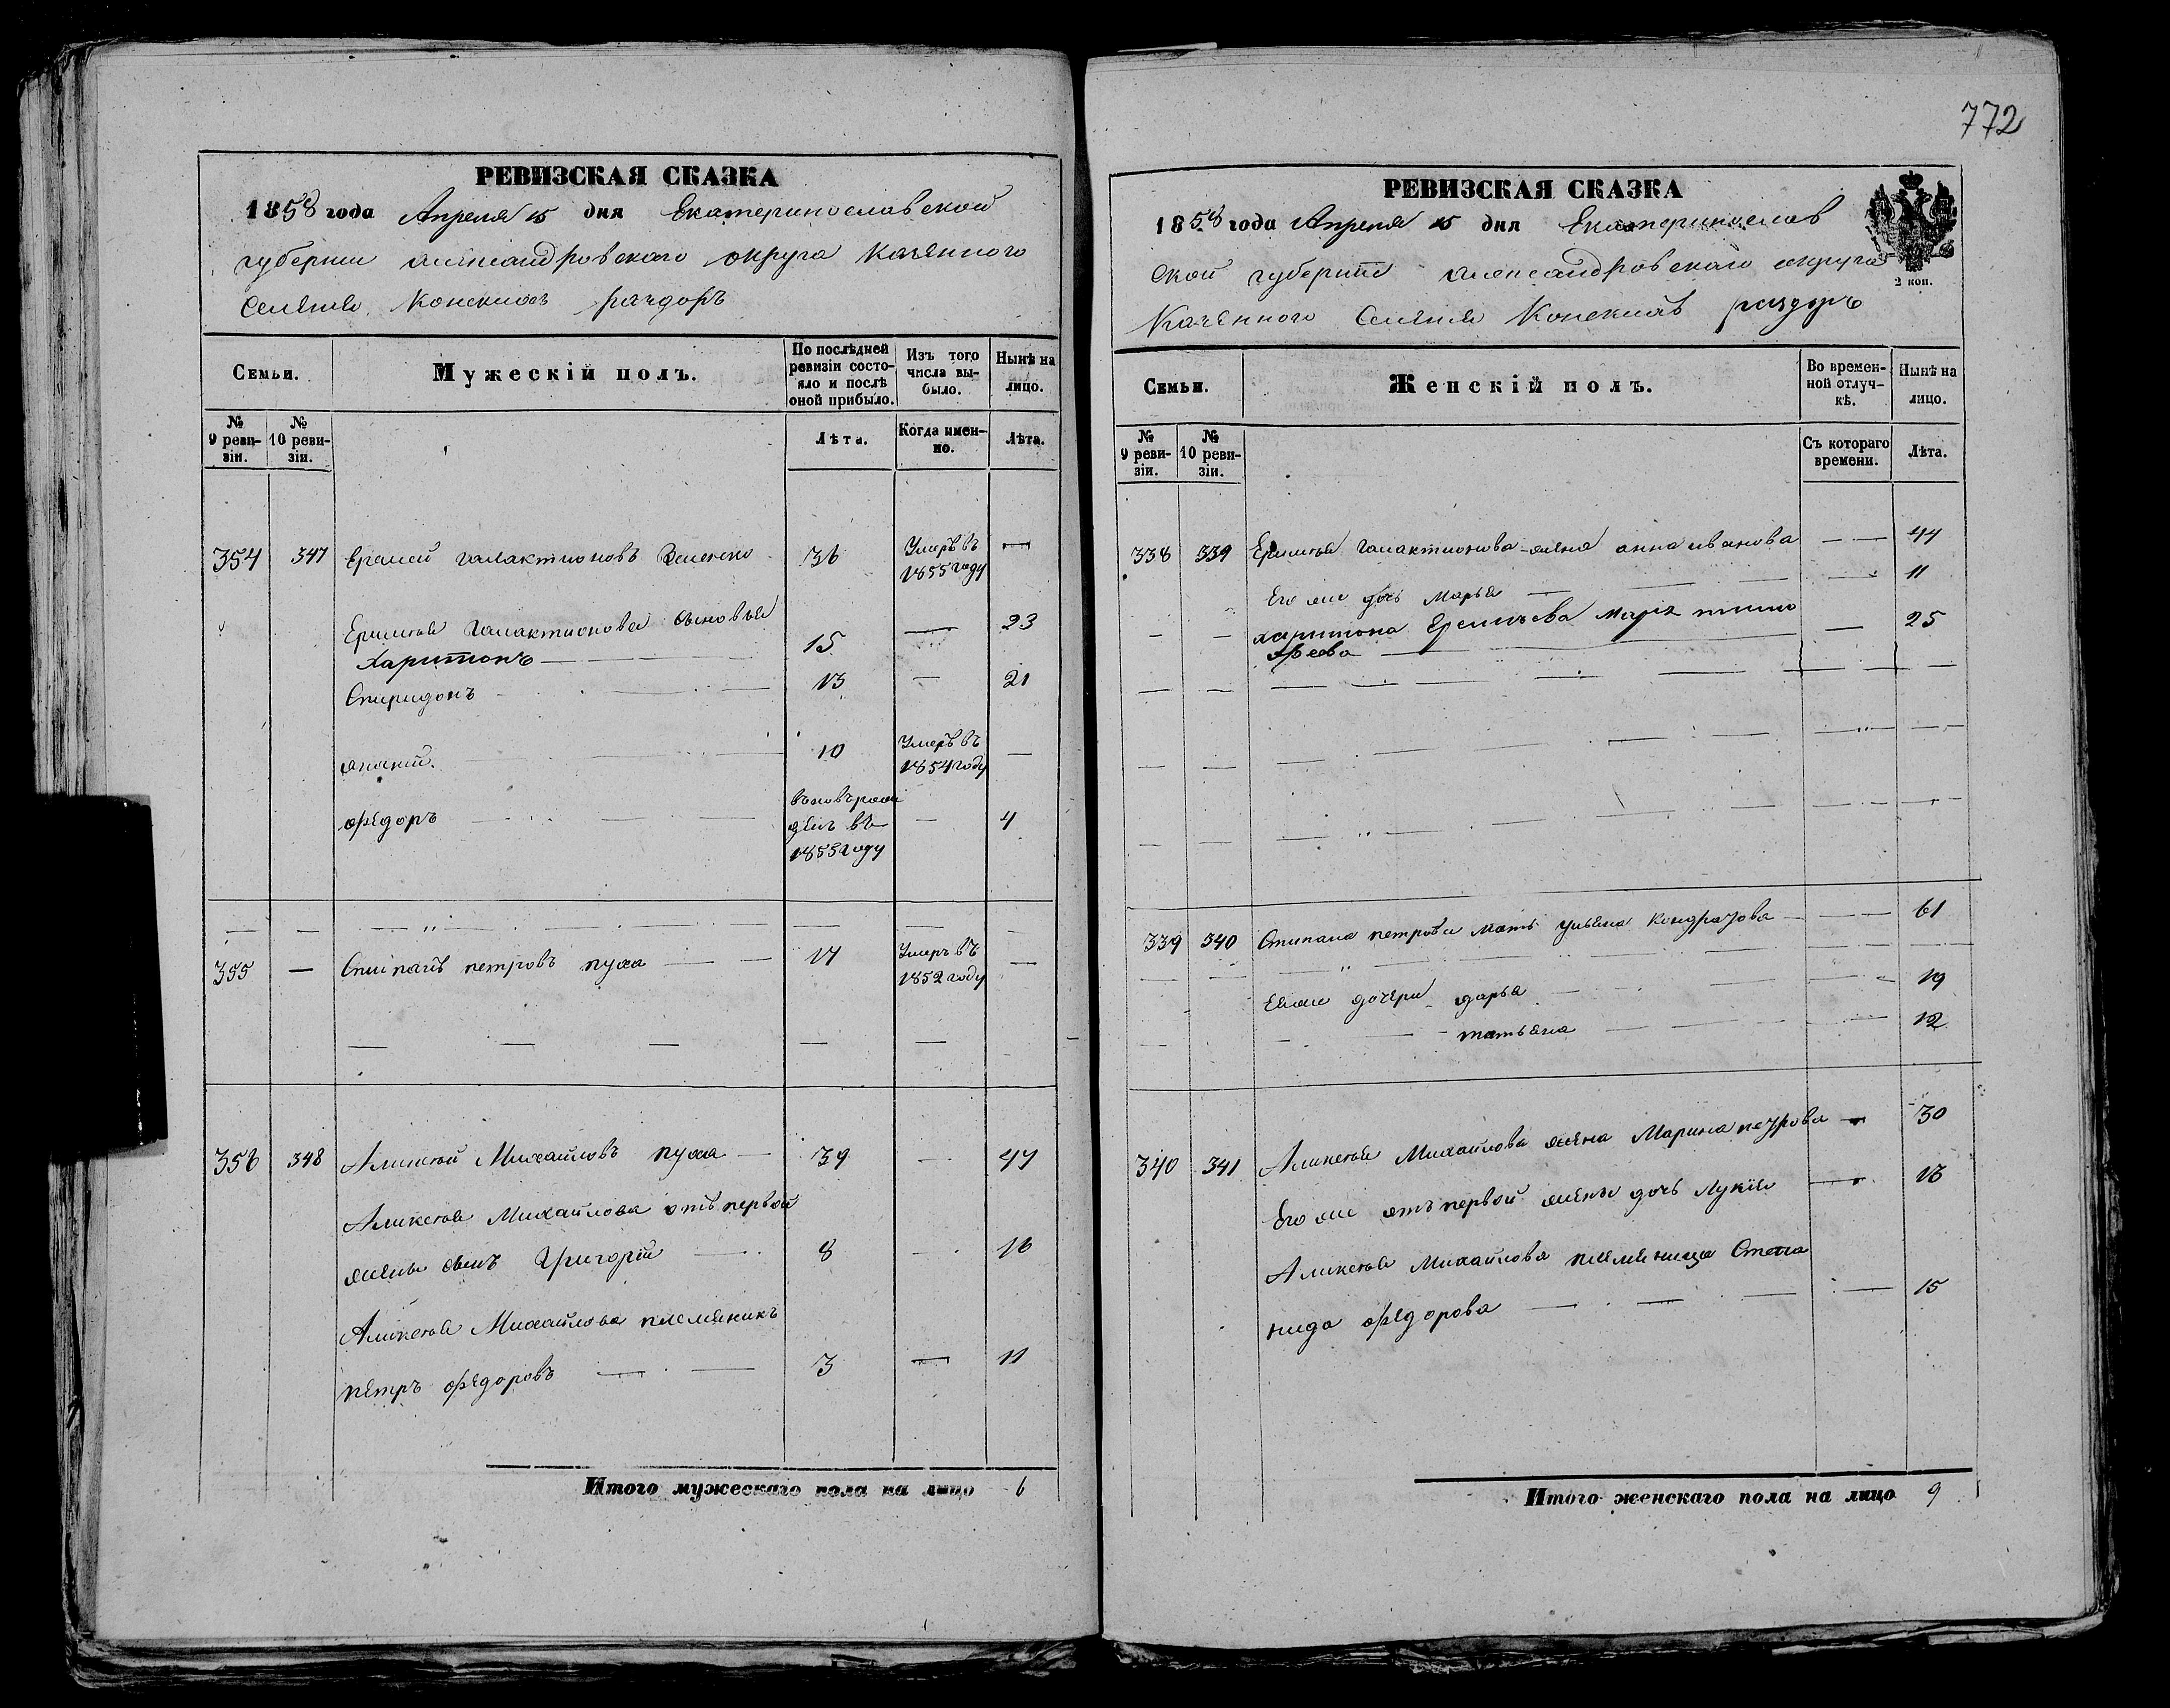 772
РЕВИЗСКАЯ СКАЗКА
1858 года Апреля 15 дня Екатеринославской
губернии александровскаго округа казенного
Селения Конскихъ раздоръ
Семьи.
Мужескій полъ.
По послѣдней ревизіи состояло и послѣ оной прибыло.
Изъ того числа выбыло.
Нынѣ на лицо.
№ 9 ревизіи.
№ 10 ревизіи.
Лѣта.
Когда именно.
Лѣта.
354 347 Еремей галактионовъ 36 Умеръ въ 1855 году —
Еримея Галактионова сыновья
Харитонъ 15 — 23
Спиридонъ 13 — 21
10 Умеръ въ 1854 году —
федоръ въ 1855 году — 4
355 — петровъ пуха 17 Умеръ въ 1852 году —
356 348 Аликсей Михайловъ пуха 39 — 47
Аликсея Михайлова отъ первой
жены сынъ Григорій 8 — 16
Аликсея Михайлова племяникъ
петръ федоровъ 3 — 11
Итого мужескаго пола на лицо 6
РЕВИЗСКАЯ СКАЗКА
1858 года Апреля 15 дня Екатеринослав
ской губерніи александровскаго округа
Казенного Селения Конскихъ раздоръ
2 коп.
Семьи.
Женскій полъ.
Во временной отлучкѣ.
Нынѣ на лицо.
№ 9 ревизіи.
№ 10 ревизіи.
Съ котораго времени.
Лѣта.
338 339 Еримея Галактионова жена анна иванова — 44
Его же дочь Марья — 11
харитона Еремѣева тимо
феева — 25
339 340 Стипана петрова мать ульяна Кондратова — 61
Еяже дочери дарья — 19
татьяна — 12
340 341 Аликсея Михайлова жена Марина петрова — 30
Его же отъ первой жены дочь Лукія — 13
Аликсея Михайлова племяница Степа
нида федорова — 15
Итого женскаго пола на лицо 9